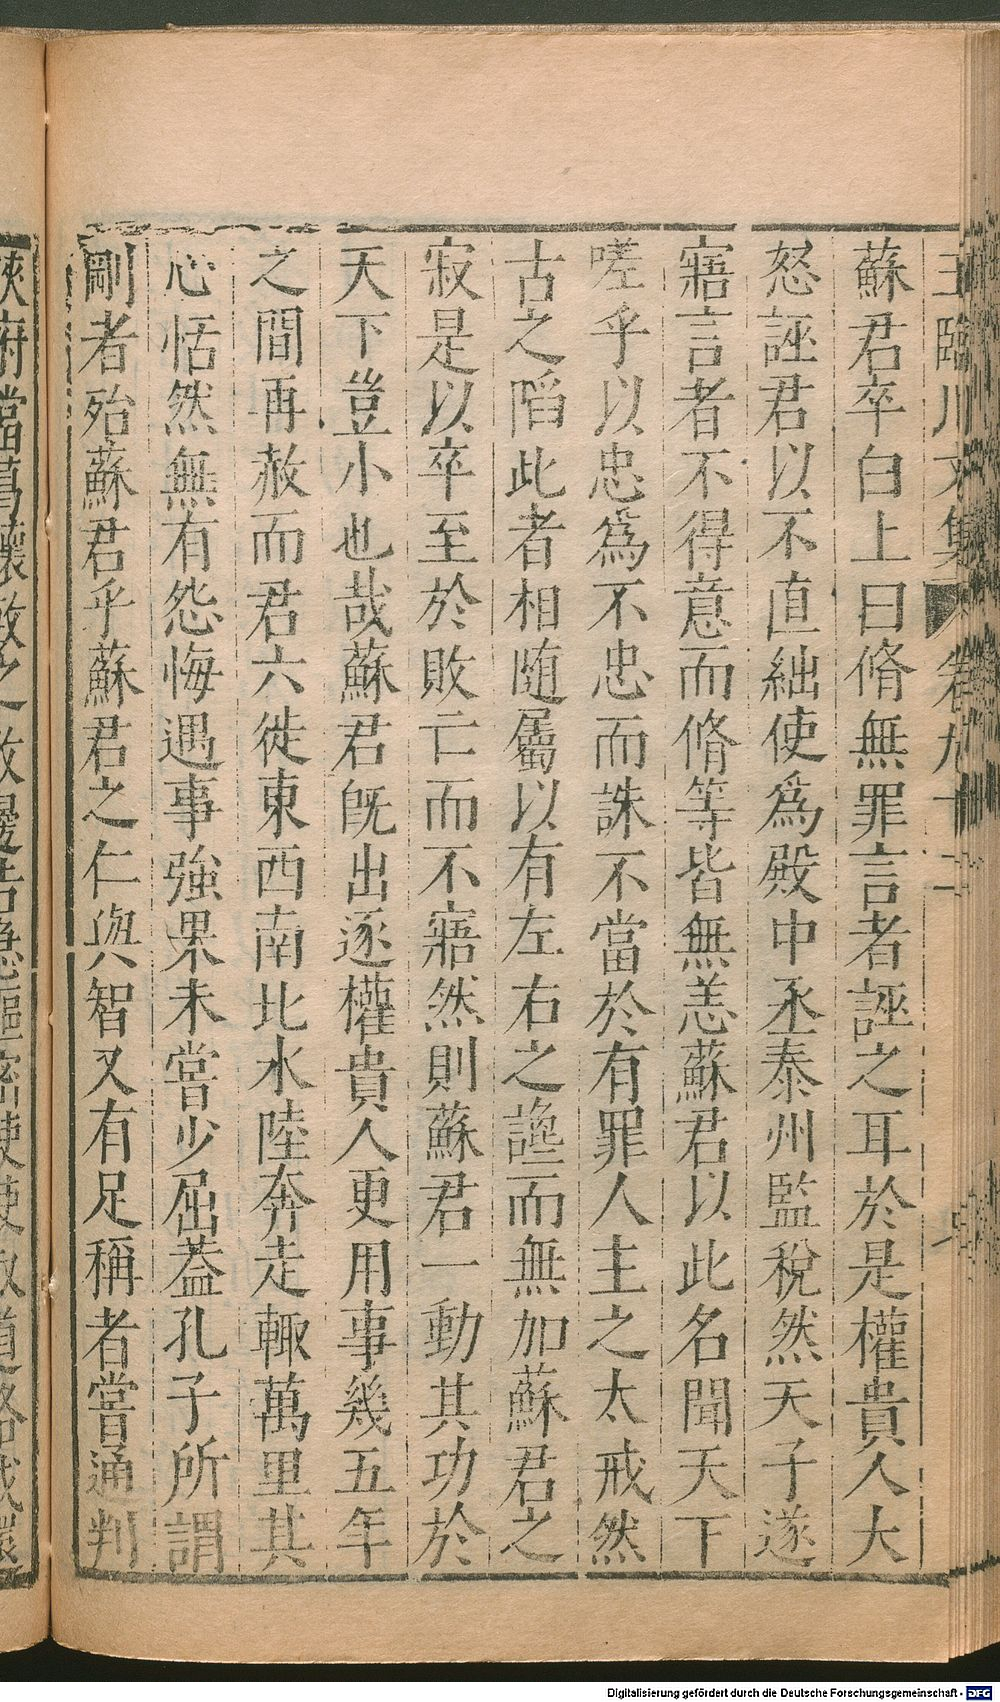 王臨川文集 卷九十二
蘇君卒白上曰脩無罪言者誣之耳於是權貴人大
怒誣君以不直絀使爲殿中丞泰州監稅然天子遂
寤言者不得意而脩等皆無恙蘇君以此名聞天下
嗟乎以忠爲不忠而誅不當於有罪人主之太戒然
古之陷此者相随屬以有左右之讒而無加蘇君之
寂是以卒至於敗亡而不寤然則蘇君一動其功於
天下豈小也哉蘇君旣出逐權貴人更用事幾五年
之間再赦而君六徙東西南北水陸奔走輙萬里其
心恬然無有怨悔遇事強果未嘗少屈葢孔子所謂
剛者殆蘇君乎蘇君之仁與智又有足稱者嘗通判
Digitalisierung gefördert durch die Deutsche Forschungsgemeinschaft - DFG